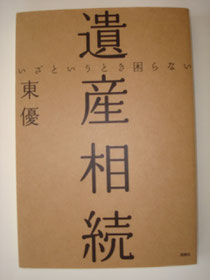 いざというとき困らない
遺産相続
東優